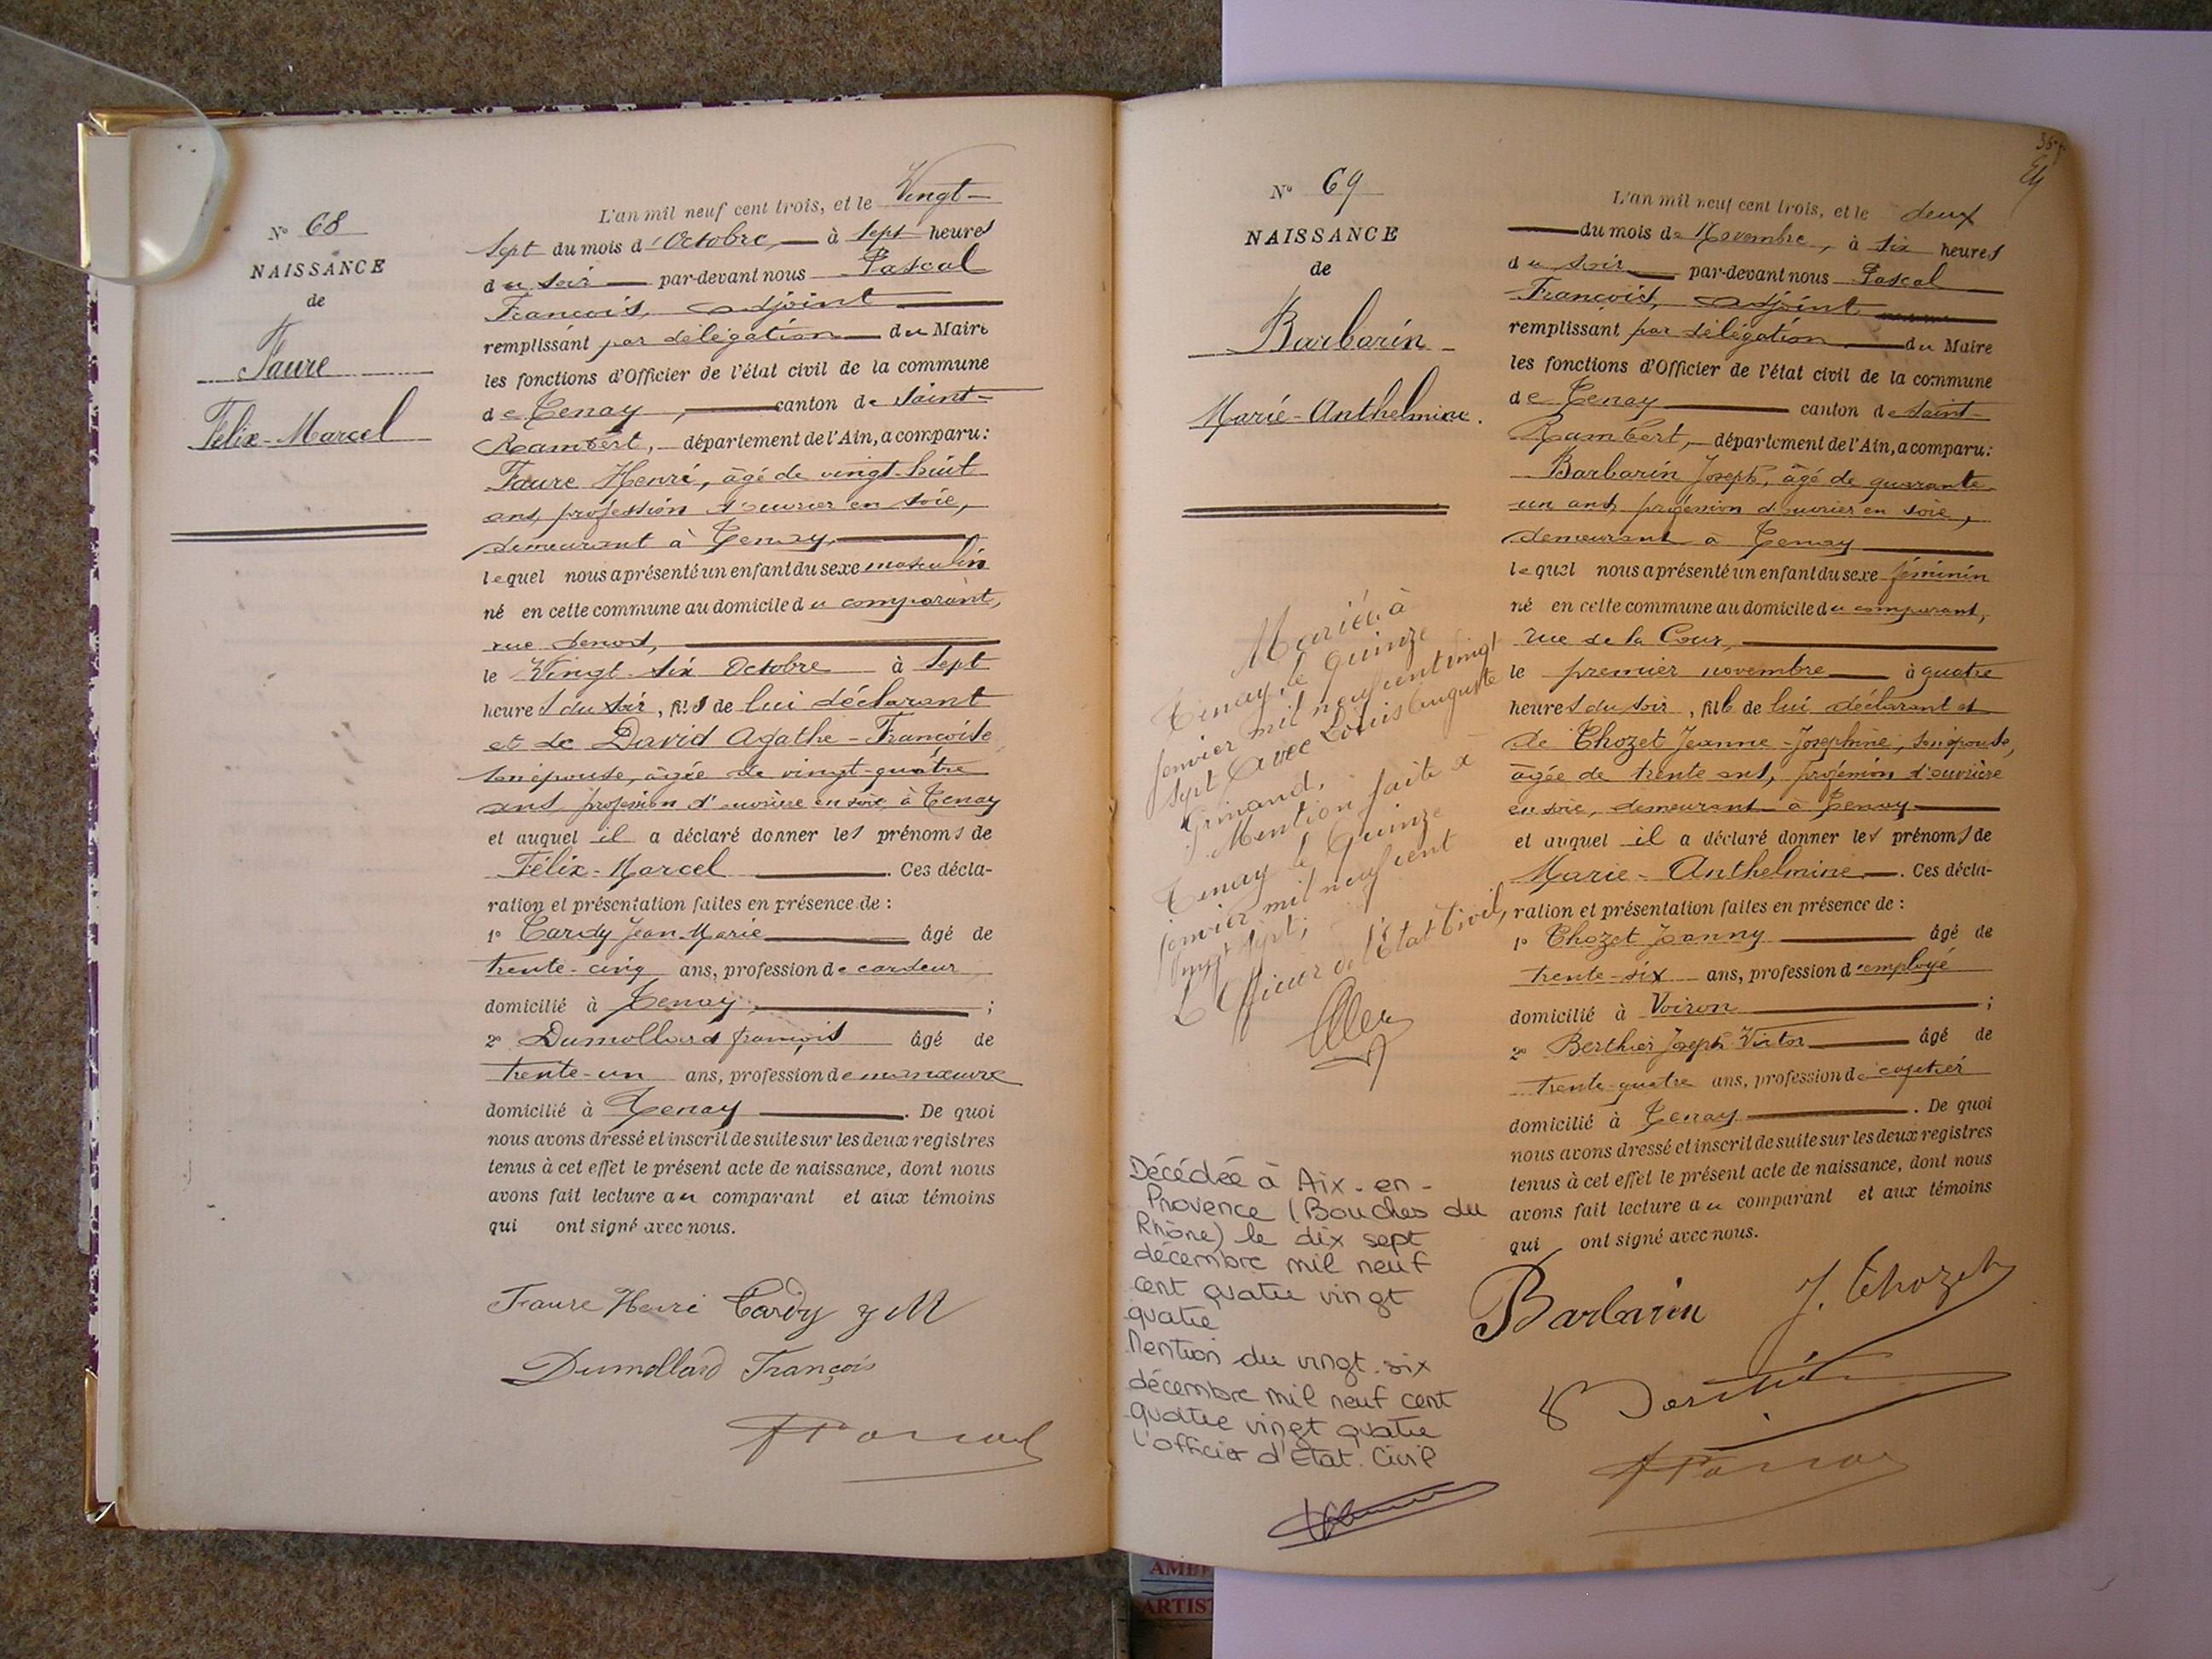 Nº 68
NAISSANCE
de
Faure
Félix-Marcel
L'an mil neuf cent trois, et le Vingt-
sept du mois d'Octobre, à sept heures
du soir par-devant nous Pascal
François, adjoint
remplissant par délégation du Maire
les fonctions d'Officier de l'état civil de la commune
de Tenay, canton de Saint-
Rambert, département de l'Ain, a comparu:
Faure Henri, âgé de vingt-huit
ans, profession d'ouvrier en soie,
demeurant à Tenay,
lequel nous a présenté un enfant du sexe masculin
né en cette commune au domicile du comparant,
rue
le Vingt-six Octobre à sept
heures du soir, fils de lui déclarant
et de David Agathe-Françoise
son épouse, âgée de vingt-quatre
ans, profession d'ouvrière en soie à Tenay
et auquel il a déclaré donner les prénoms de
Félix-Marcel. Ces décla-
ration et présentation faites en présence de :
1º Tardy Jean-Marie âgé de
trente-cinq ans, profession de cardeur
domicilié à Tenay, ;
2º Dumollard françois âgé de
trente-un ans, profession de manœuvre
domicilié à Tenay. De quoi
nous avons dressé et inscrit de suite sur les deux registres
tenus à cet effet le présent acte de naissance, dont nous
avons fait lecture au comparant et aux témoins
qui ont signé avec nous.
Faure Henri Tardy J M
Dumollard François
Pascal
Nº 69
NAISSANCE
de
Barbarin
Marie-Anthelmine.
Mariée à
Tenay le quinze
janvier mil neuf cent vingt
sept avec Louis Auguste
Grinand.
Mention faite à
Tenay le quinze
janvier mil neuf cent
vingt sept;
L'Officier de l'État Civil,
Décédée à Aix-en-
Provence (Bouches du
Rhône) le dix sept
décembre mil neuf
cent quatre vingt
quatre
Mention du vingt-six
décembre mil neuf cent
quatre vingt quatre
l'officier d'Etat. Civil
L'an mil neuf cent trois, et le deux
du mois de Novembre, à six heures
du soir par-devant nous Pascal
François, adjoint
remplissant par délégation du Maire
les fonctions d'Officier de l'état civil de la commune
de Tenay canton de Saint-
Rambert, département de l'Ain, a comparu:
Barbarin Joseph, âgé de quarante
un ans, profession d'ouvrier en soie,
demeurant à Tenay
lequel nous a présenté un enfant du sexe féminin
né en cette commune au domicile du comparant,
rue de la Cour,
le premier novembre à quatre
heures du soir, fille de lui déclarant et
de Thozet Jeanne-Josephine, son épouse,
âgée de trente ans, profession d'ouvrière
en soie, demeurant à Tenay
et auquel il a déclaré donner les prénoms de
Marie-Anthelmine. Ces décla-
ration et présentation faites en présence de :
1º Thozet Joanny âgé de
trente-six ans, profession d'employé
domicilié à Voiron ;
2º Berthier Joseph Victor âgé de
trente-quatre ans, profession de cafetier
domicilié à Tenay. De quoi
nous avons dressé et inscrit de suite sur les deux registres
tenus à cet effet le présent acte de naissance, dont nous
avons fait lecture au comparant et aux témoins
qui ont signé avec nous.
Barbarin J. Thozet
Pascal
ARTIST